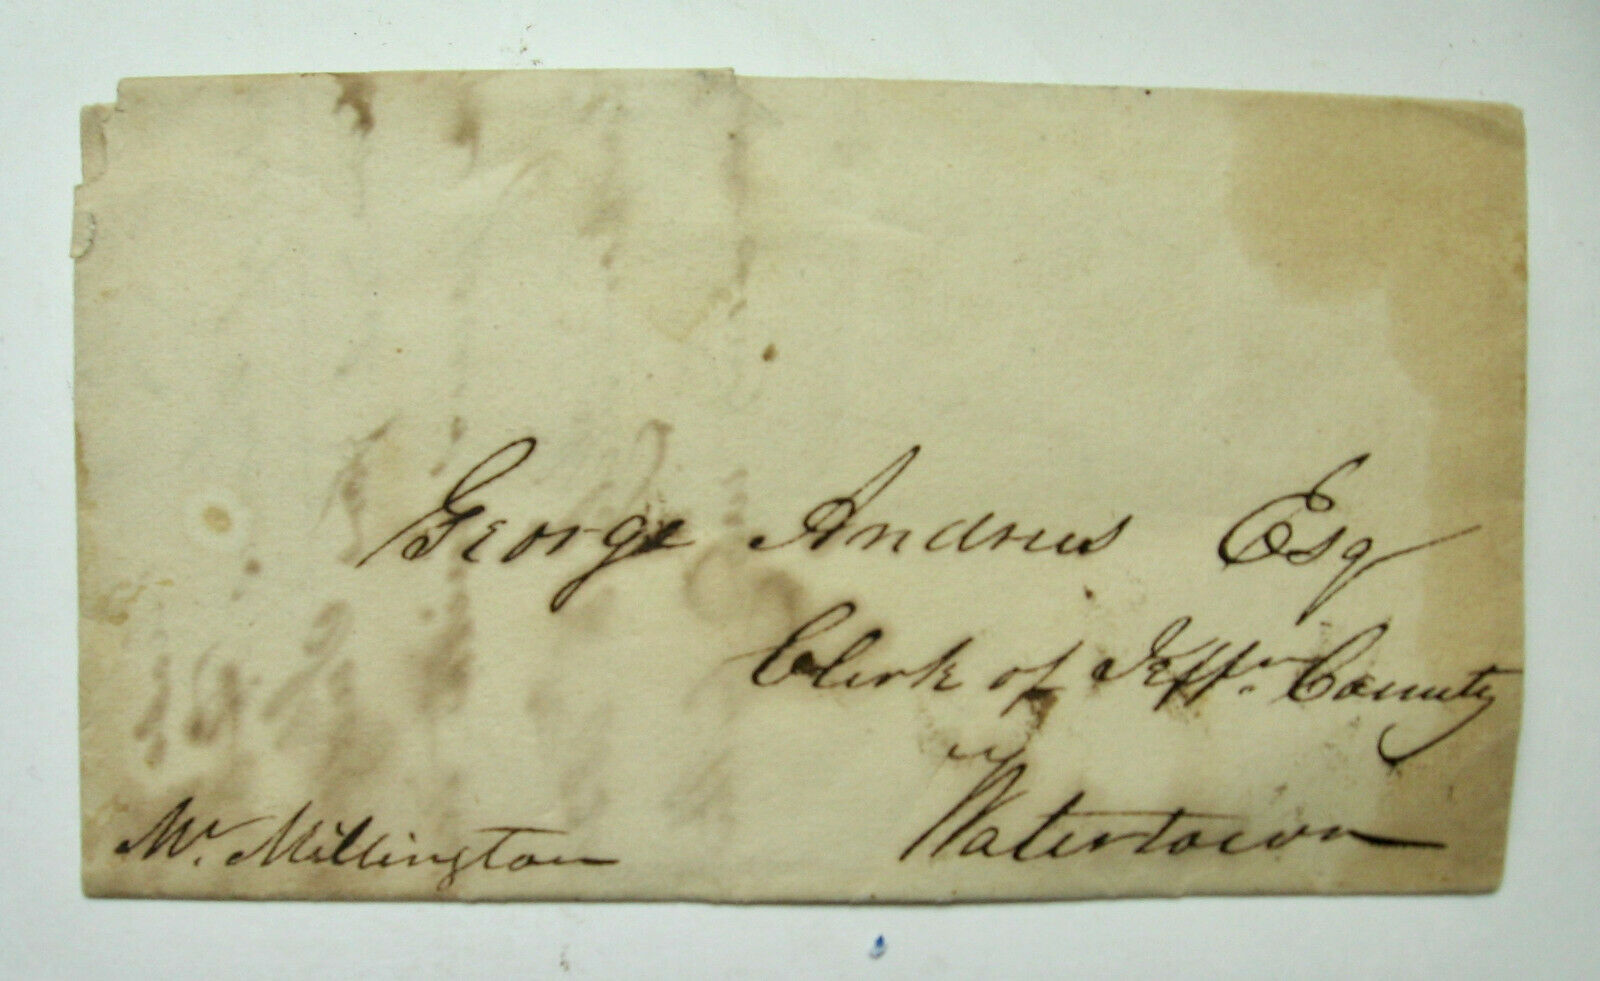 George Andrus Esq
Clerk of Jeffn. County
Watertown
Mr. Millington